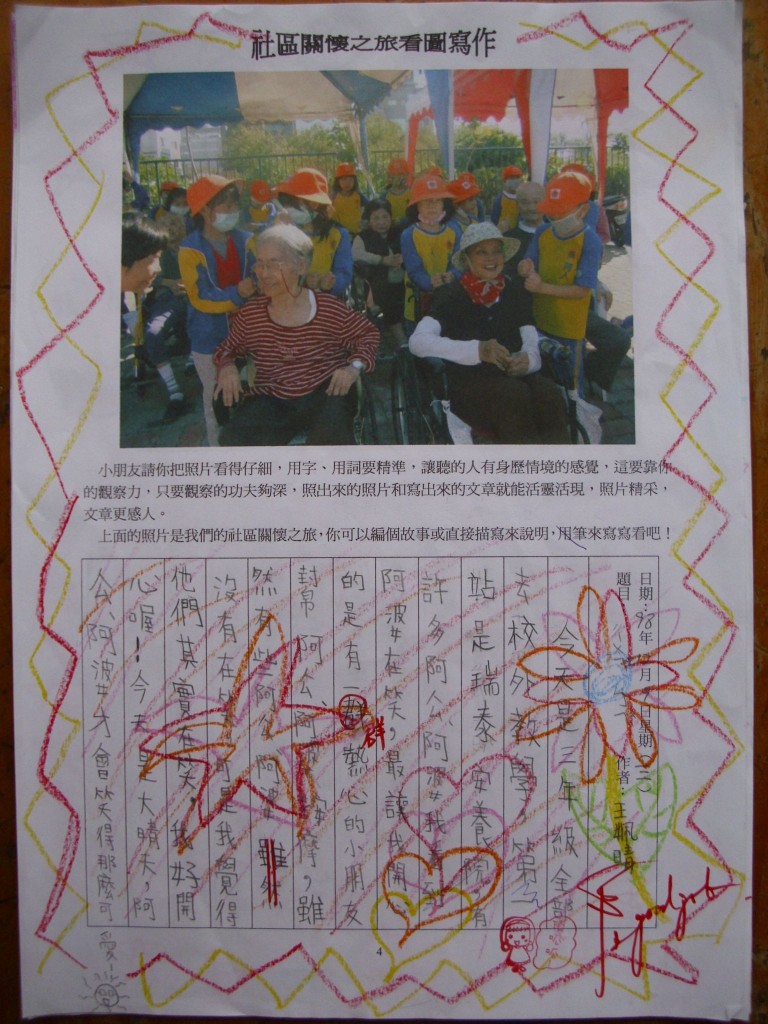 社區關懷之旅看圖寫作
小朋友請你把照片看得仔細，用字、用詞要精準，讓聽的人有身歷情境的感覺，這要靠你
的觀察力，只要觀察的功夫夠深，照出來的照片和寫出來的文章就能活靈活現，照片精采，
文章更感人。
上面的照片是我們的社區關懷之旅，你可以編個故事或直接描寫來說明，用筆來寫寫看吧！
日期：98年 月 日星期（二）
題目： 作者：王佩晴
今天是三年級全部
去校外教學，第一
站是瑞泰安養院有
許多阿公、阿婆我看到
阿婆在笑，最讓我開心
的是有一群熱心的小朋友
群
幫阿公阿婆按摩，雖
然有些阿公阿婆雖然
沒有在笑，可是我覺得
他們其實在笑，我好開
心喔！今天是大晴天，阿
公、阿婆才會笑得那麼可
愛！
good job
4